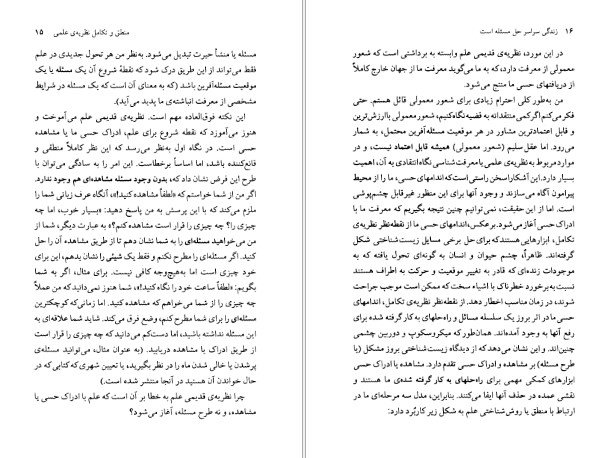 منطق و تکامل نظریه‌ی علمی ۱۵
مسئله یا منشأ حیرت تبدیل می‌شود. به‌نظر من هر تحول جدیدی در علم
فقط می‌تواند از این طریق درک شود که نقطهٔ شروع آن یک مسئله یا یک
موقعیت مسئله‌آفرین باشد (که به معنای آن است که یک مسئله در شرایط
مشخصی از معرفت انباشته‌ی ما پدید می‌آید).
این نکته فوق‌العاده مهم است. نظریه‌ی قدیمی علم می‌آموخت و
هنوز می‌آموزد که نقطهٔ شروع برای علم، ادراک حسی ما یا مشاهده
حسی است. در نگاه اول به‌نظر می‌رسد که این نظر کاملاً منطقی و
قانع‌کننده باشد، اما اساساً برخطاست. این امر را به سادگی می‌توان با
طرح این فرض نشان داد که، بدون وجود مسئله مشاهده‌ای هم وجود ندارد.
اگر من از شما خواستم که «لطفاً مشاهده کنید!»، آنگاه عرف زبانی شما را
ملزم می‌کند که با این پرسش به من پاسخ دهید: «بسیار خوب، اما چه
چیزی را؟ چه چیزی را قرار است مشاهده کنم؟» به عبارت دیگر، شما از
من می‌خواهید مسئله‌ای را به شما نشان دهم تا از طریق مشاهده آن را حل
کنید. اگر مسئله‌ای را مطرح نکنم و فقط یک شیئی را نشان بدهم، این برای
خود چیزی است اما به‌هیچ‌وجه کافی نیست. برای مثال، اگر به شما
بگویم: «لطفاً ساعت خود را نگاه کنید!»، شما هنوز نمی‌دانید که من عملاً
چه چیزی را از شما می‌خواهم که مشاهده کنید. اما زمانی‌که کوچکترین
مسئله‌ای را برای شما مطرح کنم، وضع فرق می‌کند. شاید شما علاقه‌ای به
این مسئله نداشته باشید، اما دست‌کم می‌دانید که چه چیزی را قرار است
از طریق ادراک یا مشاهده دریابید. (به عنوان مثال، می‌توانید مسئله‌ی
پرشدن یا خالی شدن ماه را در نظر بگیرید، یا تعیین شهری که کتابی که در
حال خواندن آن هستید در آنجا منتشر شده است.)
چرا نظریه‌ی قدیمی علم به خطا بر آن است که علم با ادراک حسی یا
مشاهده، و نه طرح مسئله، آغاز می‌شود؟
۱۶ زندگی سراسر حل مسئله است
در این مورد، نظریه‌ی قدیمی علم وابسته به برداشتی است که شعور
معمولی از معرفت دارد، که به ما می‌گوید معرفت ما از جهان خارج کاملاً
از دریافتهای حسی ما منتج می‌شود.
من به‌طور کلی احترام زیادی برای شعور معمولی قائل هستم. حتی
فکر می‌کنم اگر کمی منتقدانه به قضیه نگاه کنیم، شعور معمولی باارزش‌ترین
و قابل اعتمادترین مشاور در هر موقعیت مسئله‌آفرین محتمل، به شمار
می‌رود. اما عقل سلیم (شعور معمولی) همیشه قابل اعتماد نیست، و در
موارد مربوط به نظریه‌ی علمی یا معرفت‌شناسی نگاه انتقادی به آن، اهمیت
بسیار دارد. این آشکارا سخن راستی است که اندامهای حسی، ما را از محیط
پیرامون آگاه می‌سازند و وجود آنها برای این منظور غیرقابل چشم‌پوشی
است. اما از این حقیقت، نمی‌توانیم چنین نتیجه بگیریم که معرفت ما با
ادراک حسی آغاز می‌شود. برعکس، اندامهای حسی ما از نقطه‌نظر نظریه‌ی
تکامل، ابزارهایی هستند که برای حل برخی مسایل زیست‌شناختی شکل
گرفته‌اند. ظاهراً، چشم حیوان و انسان به گونه‌ای تحول یافته که به
موجودات زنده‌ای که قادر به تغییر موقعیت و حرکت به اطراف هستند
نسبت‌به برخورد خطرناک با اشیاء سخت که ممکن است موجب جراحت
شوند، در زمان مناسب اخطار دهد. از نقطه‌نظر نظریه‌ی تکامل، اندامهای
حسی ما در اثر بروز یک سلسله مسائل و راه‌حلهای به کار گرفته شده برای
رفع آنها به وجود آمده‌اند. همان‌طور که میکروسکوپ و دوربین چشمی
چنین‌اند. و این نشان می‌دهد که از دیدگاه زیست‌شناختی بروز مشکل (یا
طرح مسئله) بر مشاهده و ادراک حسی تقدم دارد. مشاهده یا ادراک حسی
ابزارهای کمکی مهمی برای راه‌حلهای به کار گرفته شده‌ی ما هستند و
نقش عمده‌ای در حذف آنها ایفا می‌کنند. بنابراین، مدل سه مرحله‌ای ما در
ارتباط با منطق یا روش‌شناختی علم به شکل زیر کاربُرد دارد: